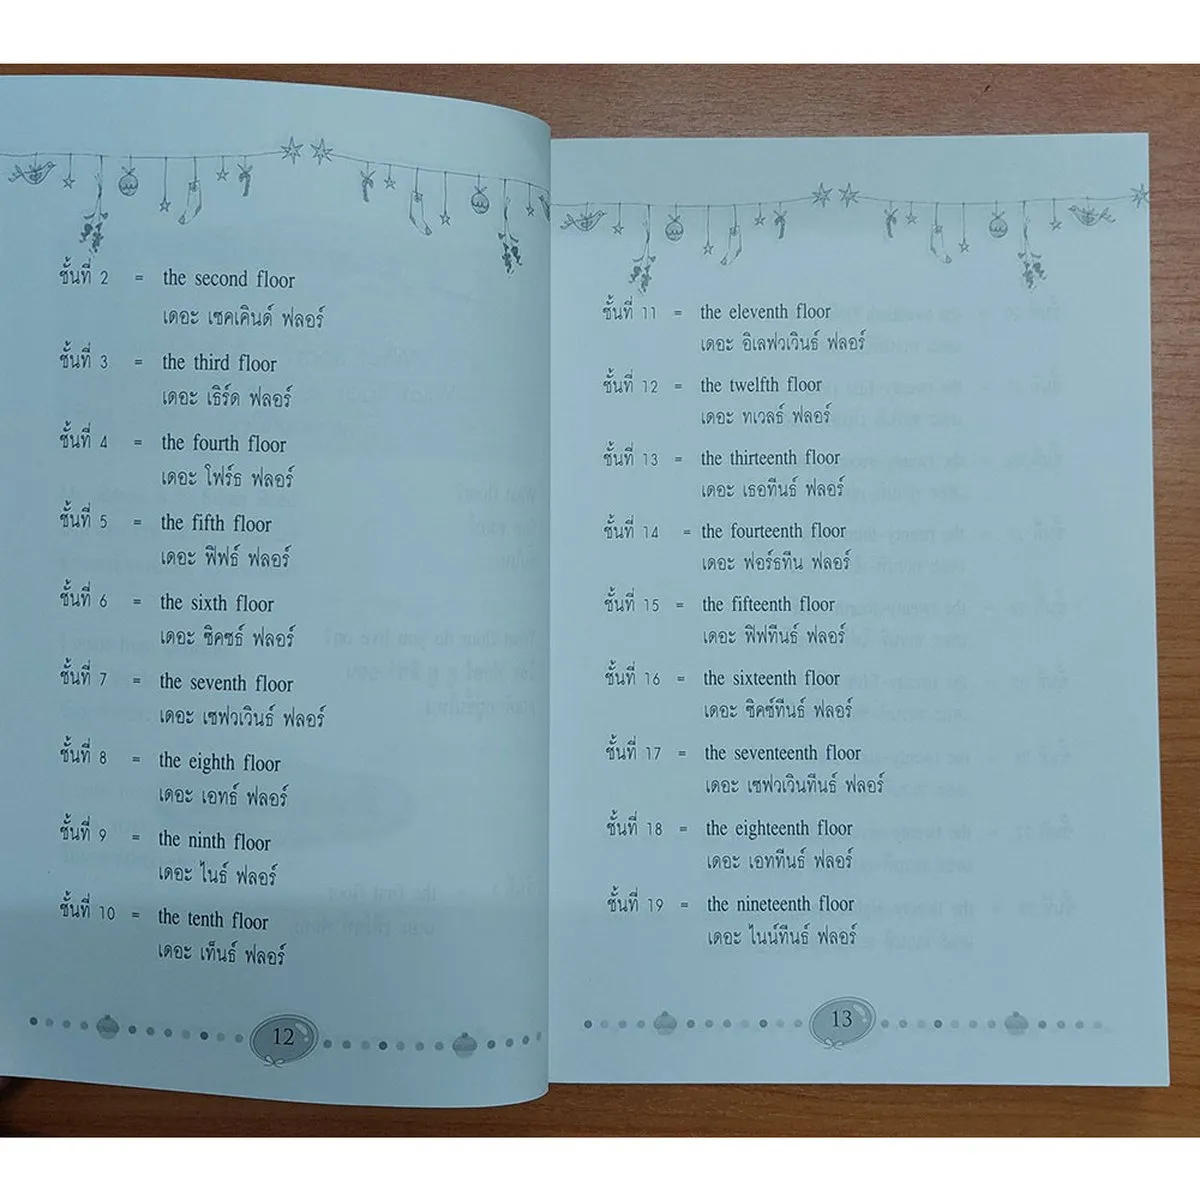 ชั้นที่ 2 = the second floor
เดอะ เซคเคินด์ ฟลอร์
ชั้นที่ 3 = the third floor
เดอะ เธิร์ด ฟลอร์
ชั้นที่ 4 = the fourth floor
เดอะ โฟร์ธ ฟลอร์
ชั้นที่ 5 = the fifth floor
เดอะ ฟิฟธ์ ฟลอร์
ชั้นที่ 6 = the sixth floor
เดอะ ซิคซธ์ ฟลอร์
ชั้นที่ 7 = the seventh floor
เดอะ เซฟวเวินธ์ ฟลอร์
ชั้นที่ 8 = the eighth floor
เดอะ เอทธ์ ฟลอร์
ชั้นที่ 9 = the ninth floor
เดอะ ไนธ์ ฟลอร์
ชั้นที่ 10 = the tenth floor
เดอะ เท็นธ์ ฟลอร์
12
ชั้นที่ 11 = the eleventh floor
เดอะ อิเลฟวเวินธ์ ฟลอร์
ชั้นที่ 12 = the twelfth floor
เดอะ ทเวลธ์ ฟลอร์
ชั้นที่ 13 = the thirteenth floor
เดอะ เธอทีนธ์ ฟลอร์
ชั้นที่ 14 = the fourteenth floor
เดอะ ฟอร์ธทีน ฟลอร์
ชั้นที่ 15 = the fifteenth floor
เดอะ ฟิฟทีนธ์ ฟลอร์
ชั้นที่ 16 = the sixteenth floor
เดอะ ซิคซ์ทีนธ์ ฟลอร์
ชั้นที่ 17 = the seventeenth floor
เดอะ เซฟวเวินทีนธ์ ฟลอร์
ชั้นที่ 18 = the eighteenth floor
เดอะ เอททีนธ์ ฟลอร์
ชั้นที่ 19 = the nineteenth floor
เดอะ ไนน์ทีนธ์ ฟลอร์
13